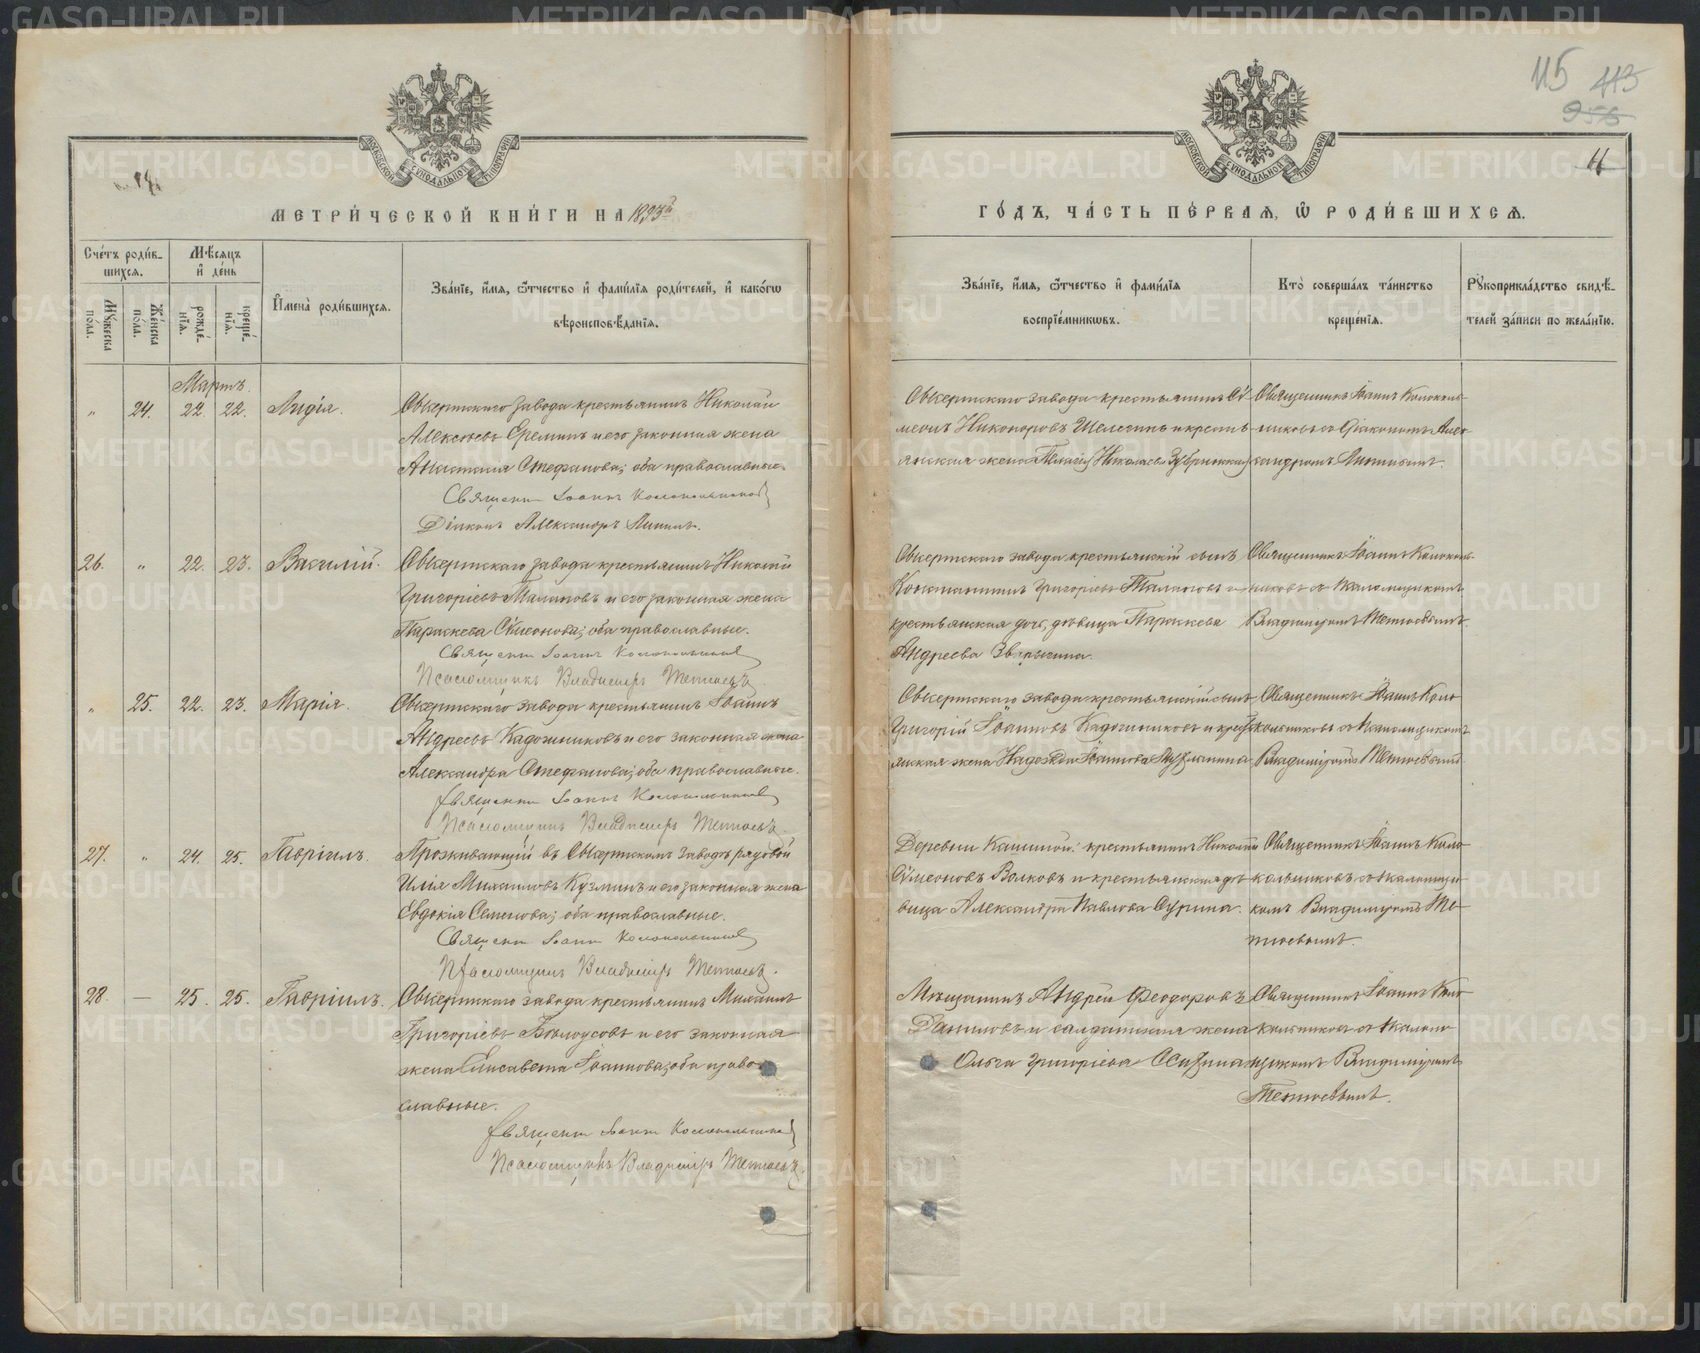 115 113
955
11
МОСКОВСКОЙ СУНОДАЛЬНОЙ ТИПОГРАФІИ
МОСКОВСКОЙ СУНОДАЛЬНОЙ ТИПОГРАФІИ
МЕТРИ́ЧЕСКОЙ КНИ́ГИ НА 1893й
ГО́ДЪ, ЧА́СТЬ ПЕ́РВАЯ, Ѡ РОДИ́ВШИХСЯ.
Сче́тъ роди́в-
шихся.
Мꙋ́жеска по́ла.
Же́нска по́ла.
Мѣ́сяцъ
и҆ де́нь
рожде́-
нїя.
креще́-
нїя.
И҆мена̀ роди́вшихся.
Зва́нїе, и҆́мя, ѻ҆́тчество и҆ фами́лїя роди́телей, и҆ како́гѡ
вѣроисповѣ́данїя.
Зва́нїе, и҆́мя, ѻ҆́тчество и҆ фами́лїя
воспрїе́мникѡвъ.
Кто̀ соверша́лъ та́инство
креще́нїя.
Рꙋкоприкла́дство свидѣ́-
телей за́писи по жела́нїю.
Мартъ.
„ 24. 22. 22. Лидія.
Сысертскаго завода крестьянинъ Николай
Алексѣевъ Ереминъ и его законная жена
Анастасія Стефанова; оба православные.
Священн Іоаннъ Колокольников
Діаконъ Александръ Липинъ.
Сысертскаго завода крестьянинъ Сѵ-
меонъ Никоноровъ Шелегинъ и кресть-
янская жена Пелагія Николаева
Священникъ Іоаннъ Колоколь-
никовъ съ діакономъ Алек-
сандромъ Липинымъ.
26. „ 22. 23. Василій.
Сысертскаго завода крестьянинъ Николай
Григорьевъ Талановъ и его законная жена
Параскева Сѵмеонова; оба православные.
Священн Іоаннъ Колокольников
Псаломщикъ Владиміръ Тетюевъ.
Сысертскаго завода крестьянскій сынъ
Константинъ Григорьевъ Талановъ и
крестьянская дочь, дѣвица Параскева
Андреева Зварыгина.
Священникъ Іоаннъ Колоколь-
никовъ съ псаломщикомъ
Владиміромъ Тетюевымъ.
„ 25. 22. 23. Марія.
Сысертскаго завода крестьянинъ Іоаннъ
Андреевъ Кадошниковъ и его законная жена
Александра Стефанова; оба православные.
Священн Іоаннъ Колокольников
Псаломщикъ Владиміръ Тетюевъ.
Сысертскаго завода крестьянскій сынъ
Григорій Іоанновъ Кадошниковъ и крест-
янская жена Надежда Іоаннова
Священникъ Іоаннъ Коло-
кольниковъ съ псаломщикомъ
Владиміромъ Тетюевымъ
27. „ 24. 25. Гавріилъ.
Проживающій въ Сысертскомъ заводѣ рядовой
Илія Михаиловъ Кузминъ и его законная жена
Евдокія Семенова; оба православные.
Священн Іоанн Колокольников
Псаломщикъ Владиміръ Тетюевъ.
Деревни Кашиной: крестьянинъ Николай
Сѵмеоновъ Волковъ и крестьянская дѣ-
вица Александра Павлова Сурина.
Священникъ Іоаннъ Коло-
кольниковъ съ псаломщи-
комъ Владиміромъ Те-
тюевымъ.
28. — 25. 25. Гавріилъ.
Сысертскаго завода крестьянинъ Михаилъ
Григорьевъ Бѣлоусовъ и его законная
жена Елисавета Іоаннова; оба право-
славные.
Священн Іоанн Колокольников
Псаломщикъ Владиміръ Тетюевъ.
Мѣщанинъ Андрей Феодоровъ
Даниловъ и солдатская жена
Ольга Григорьева
Священникъ Іоаннъ Коло-
кольниковъ съ псалом-
щикомъ Владиміромъ
Тетюевымъ.
METRIKI.GASO-URAL.RU